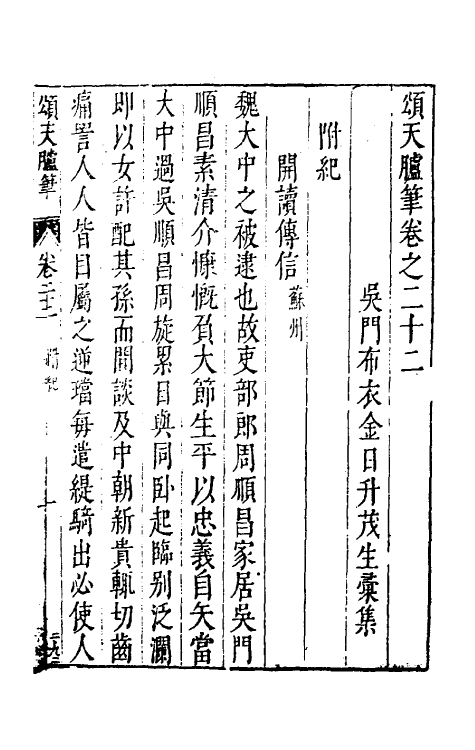 頌天臚筆卷之二十二
吳門布衣金日升茂生彙集
附紀
開讀傳信蘇州
魏大中之被逮也故吏部郎周順昌家居吳門
順昌素清介慷慨負大節生平以忠義自矢當
大中過吳順昌周旋累日與同卧起臨別泛瀾
即以女許配其孫而間談及中朝新貴輒切齒
痛詈人人皆目屬之逆璫每遣緹騎出必使人
頌天臚筆
卷二十二
附紀
一